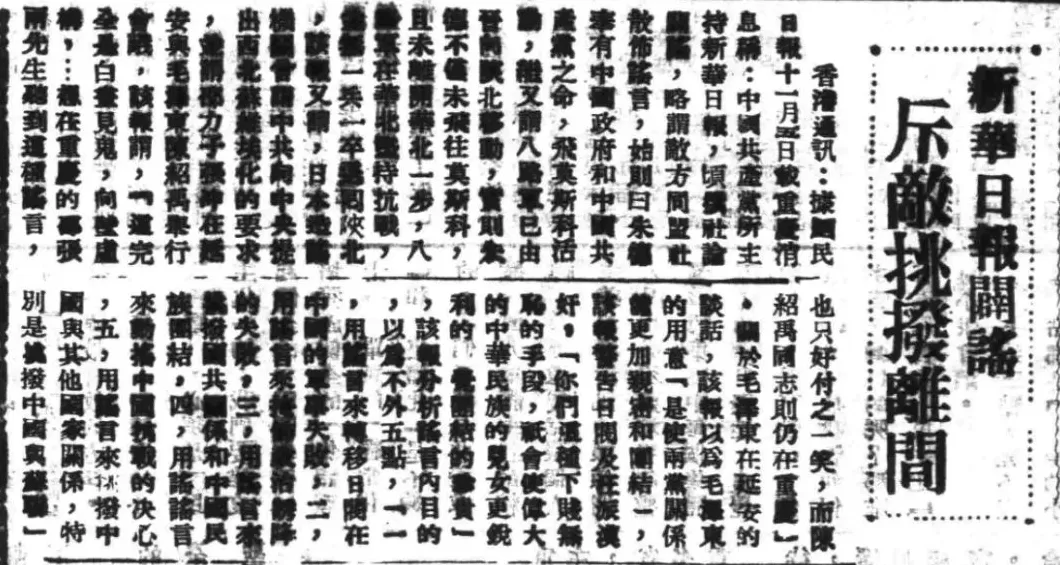 新華日報闢謠
斥敵挑撥離間
香港通訊:據國民
日報十一月五日載重慶消
息稱:中國共產黨所主
持新華日報,頃撰社論
闢謠,略謂敵方同盟社
散佈謠言,始則曰朱德
奉有中國政府和中國共
產黨之命,飛莫斯科活
動,繼又謂八路軍已由
晉向陝北移動,實則朱
德不僅未飛往莫斯科,
且未離開華北一步,八
路軍在華北堅持抗戰,
一乘一卒退回陝北
,該報又謂,日本造謠
機關會謂中共向中央提
出西北蘇維埃化的要求
,並謂邵力子張冲在延
安與毛澤東陳紹禹舉行
會談,該報謂,「這完
全是白晝見鬼,向壁虛
構,…想在重慶的邵張
兩先生聽到這種謠言,
也只好付之一笑,而陳
紹禹國志則仍在重慶」
,關於毛澤東在延安的
談話,該報以爲毛澤東
的用意「是使兩黨關係
能更加親密和團結」,
該報警告日閥及在派漢
奸,「你們這種下賤無
恥的手段,祇會使偉大
的中華民族的兒女更銳
利的團結的」
,該報分析謠言內目的
,以爲不外五點,「一
,用謠言來轉移日閥在
中國的軍事失敗,二,
用謠言來掩飾政治誘降
的失敗,三,用謠言來
挑撥國共關係和中國民
族團結,四,用謠謠言
來動搖中國抗戰的决心
,五,用謠言來挑撥中
國與其他國家關係,特
別是挑撥中國與蘇聯」